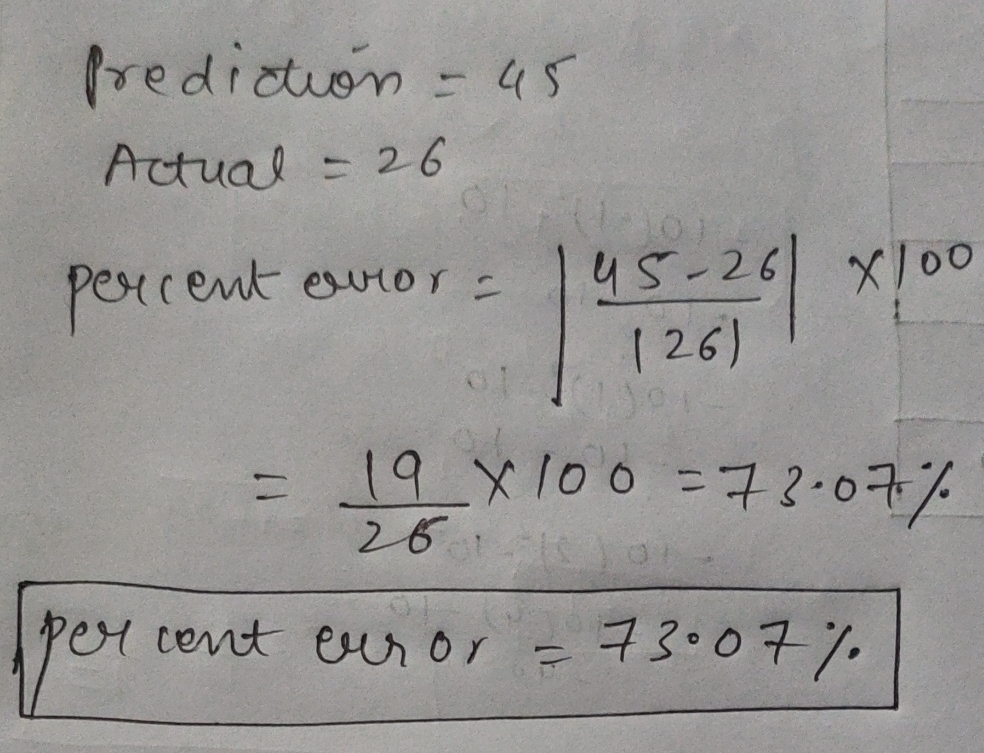 Prediction = 45
Actual = 26
percent error = | 45-26 / |26| | x 100
= 19/26 x 100 = 73.07%
percent error = 73.07%